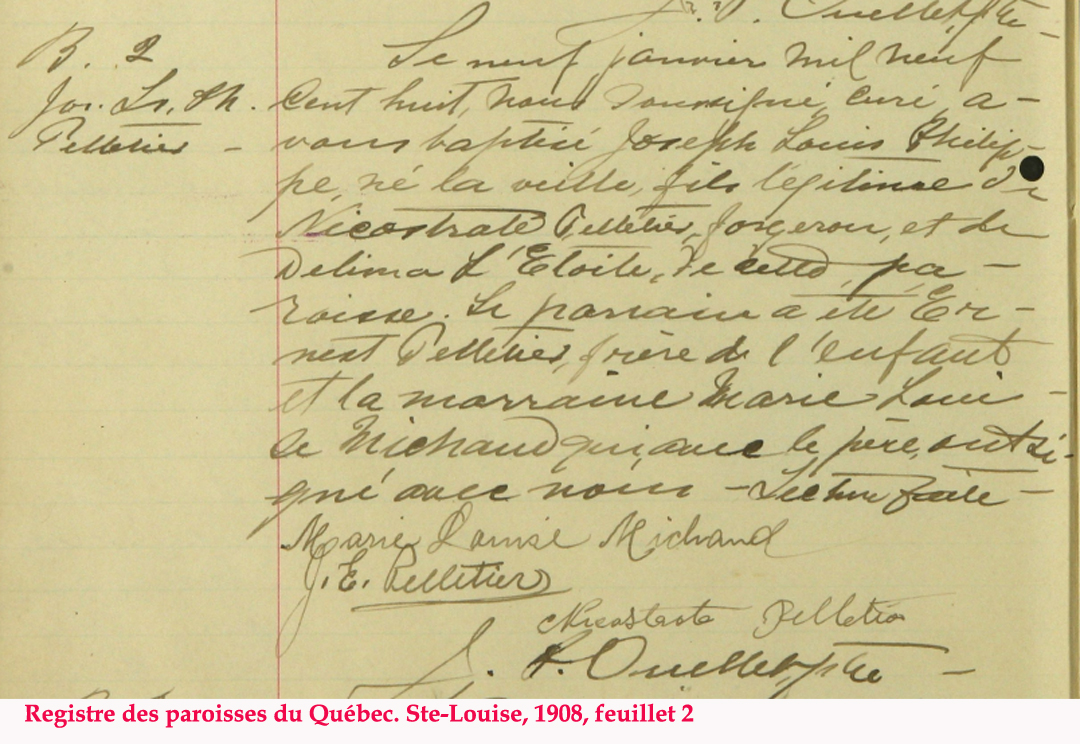 Ouellet, Ptre
B. 2
Jos. Ls. Ph.
Pelletier –
Le neuf janvier mil neuf
cent huit, nous soussigné, curé, a–
vons baptisé Joseph Louis Philip–
pe, né la veille, fils légitime de
Nicostrate Pelletier, forgeron, et de
Delima L'Etoile, de cette pa–
roisse. Le parrain a été Er–
nest Pelletier, frère de l'enfant
et la marraine Marie Loui–
se Michaud qui, avec le père, ont si–
gné avec nous – Lecture faite –
Marie Louise Michaud
J. E. Pelletier
Nicostrate Pelletier
Ouellet, Ptre –
Registre des paroisses du Québec. Ste-Louise, 1908, feuillet 2